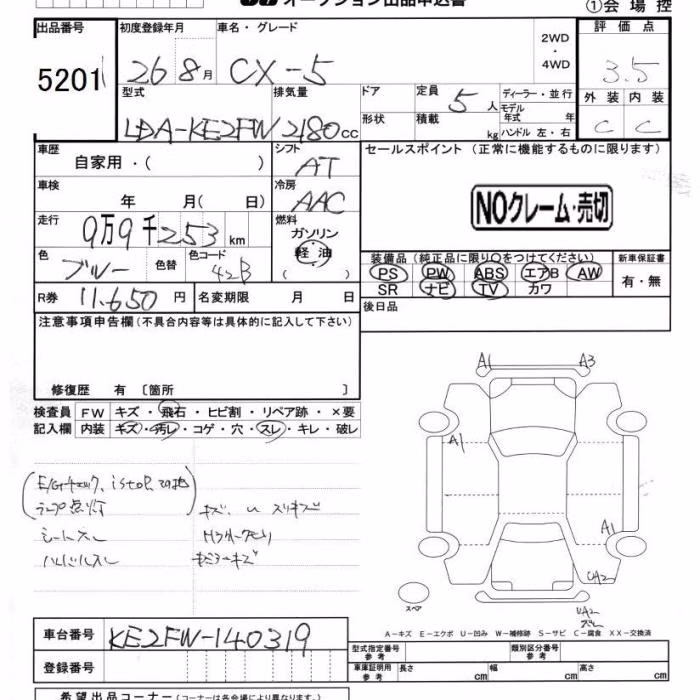 オークション出品申込書
①会場控
出品番号 初度登録年月 車名・グレード 2WD ・ 4WD 評価点
5201 26 8月 CX-5 3.5
型式 排気量 ドア 定員 5人 ディーラー・並行 外装 内装
LDA-KE2FW 2180cc 形状 積載 kg モデル年式 年 C C
ハンドル 左・右
車歴 自家用・( ) シフト AT セールスポイント (正常に機能するものに限ります)
車検 年 月( 日) 冷房 AAC NOクレーム・売切
走行 9万9千253km 燃料 ガソリン 軽油 ( )
色 ブルー 色替 色コード 42B 装備品 (純正品に限り〇をつけてください) 新車保証書
PS PW ABS エアB AW 有・無
SR ナビ TV カワ
R券 11,650円 名変期限 月 日 後日品
注意事項申告欄 (不具合内容等は具体的に記入して下さい)
修復歴 有 〔箇所 〕
検査員 FW キズ・飛石・ヒビ割・リペア跡・×要
記入欄 内装 キズ・汚レ・コゲ・穴・スレ・キレ・破レ
A1 A3
A1
A1
UA2
UA2
E/Gチェック、istop
ランプ点灯
シートスレ
ハンドルスレ
スペア
A-キズ E-エクボ U-凹み W-補修跡 S-サビ C-腐食 XX-交換済
車台番号 KE2FW-140319 型式指定番号 参考 類別区分番号 参考
登録番号 車庫証明用 参考 長さ cm 幅 cm 高さ cm
希望出品コーナー (コーナーは各会場により異なります)